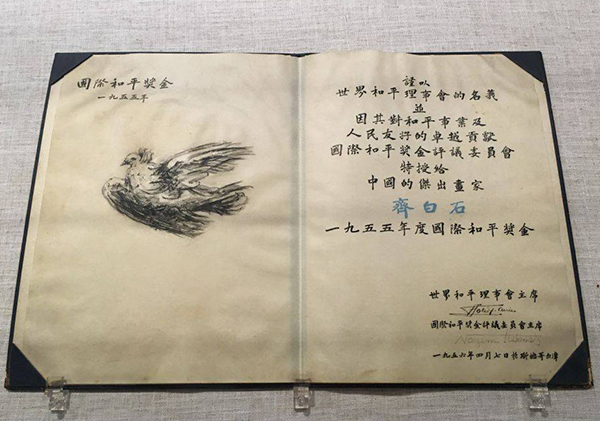 國際和平獎金
一九五五年
謹以
世界和平理事會的名義
並
因其對和平事業及
人民友好的卓越貢獻
國際和平獎金評議委員會
特授給
中國的傑出畫家
齊白石
一九五五年度國際和平獎金
世界和平理事會主席
國際和平獎金評議委員會主席
Nazim
一九五六年四月七日於斯德